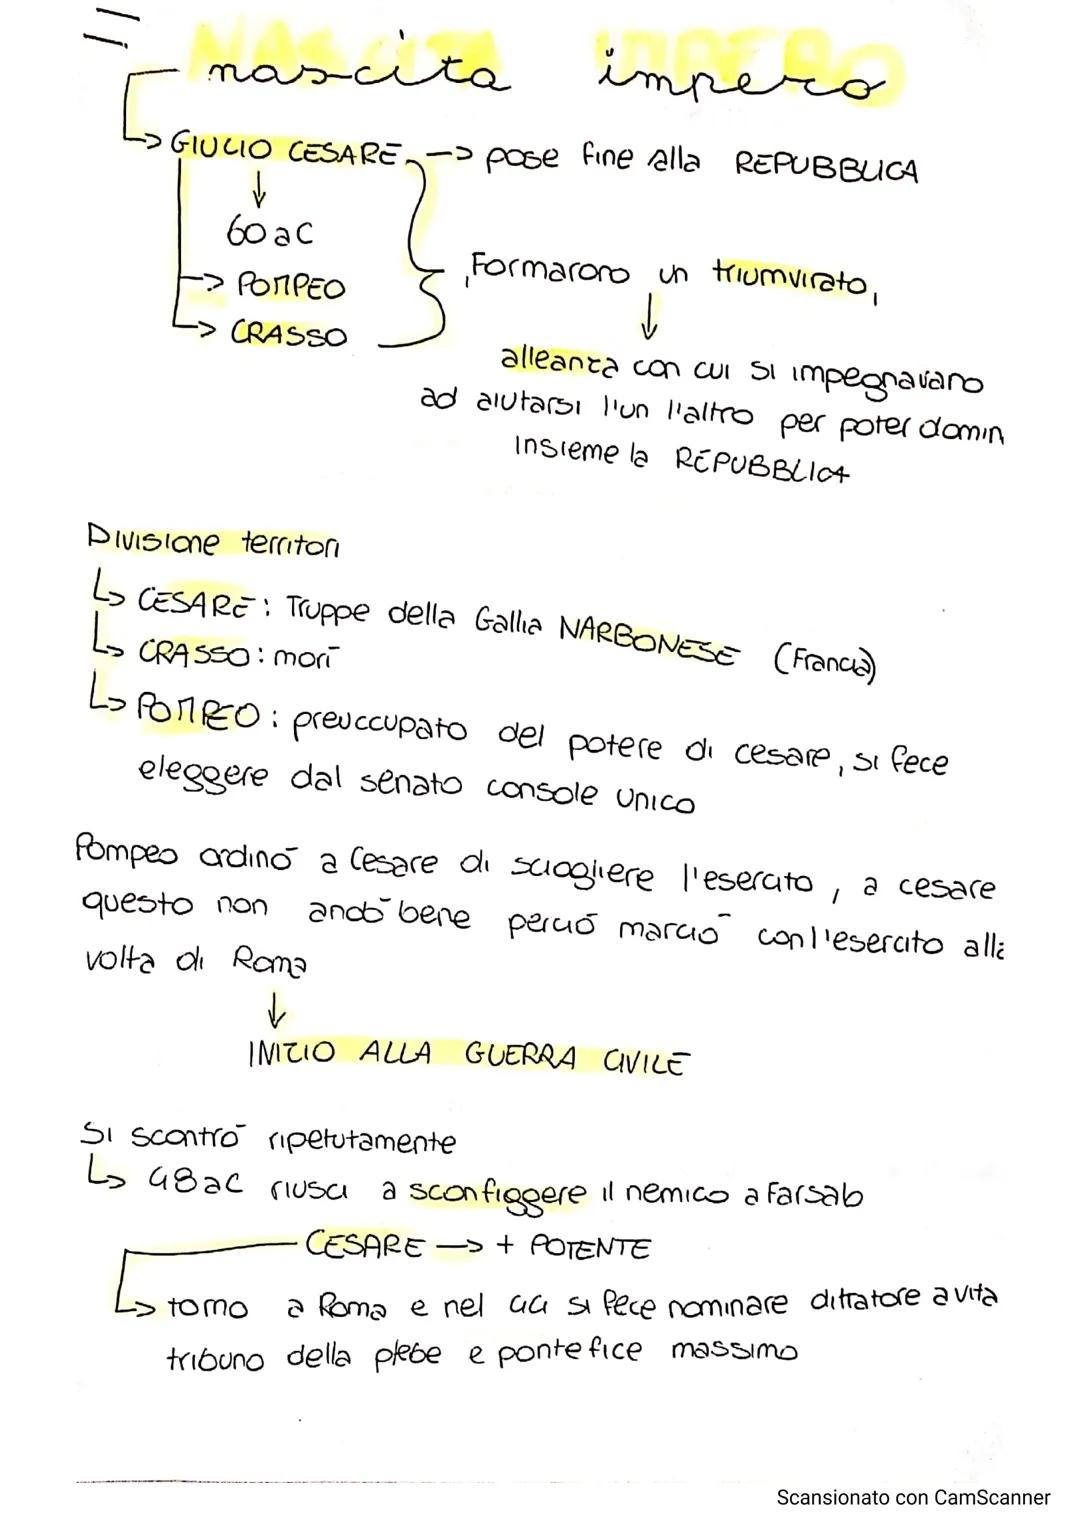 NASCITA IMPERO
nascita impero
GIULIO CESARE → pose fine alla REPUBBLICA
↓
60 aC
→ POMPEO
→ CRASSO
Formarono un triumvirato,
↓
alleanza con cui si impegnavano
ad aiutarsi l'un l'altro per poter domin
insieme la REPUBBLICA
Divisione territori
↳ CESARE: Truppe della Gallia NARBONESE (Francia)
↳ CRASSO: morì
↳ POMPEO: preuccupato del potere di cesare, si fece
eleggere dal senato console unico
Pompeo ordinò a Cesare di sciogliere l'esercito, a cesare
questo non andò bene perciò marciò con l'esercito alla
volta di Roma
↓
INIZIO ALLA GUERRA CIVILE
Si scontrò ripetutamente
↳ 48 aC riusci a sconfiggere il nemico a Farsalo
CESARE → + POTENTE
↳ torno a Roma e nel 44 si fece nominare dittatore a vita
tribuno della plebe e pontefice massimo
Scansionato con CamScanner